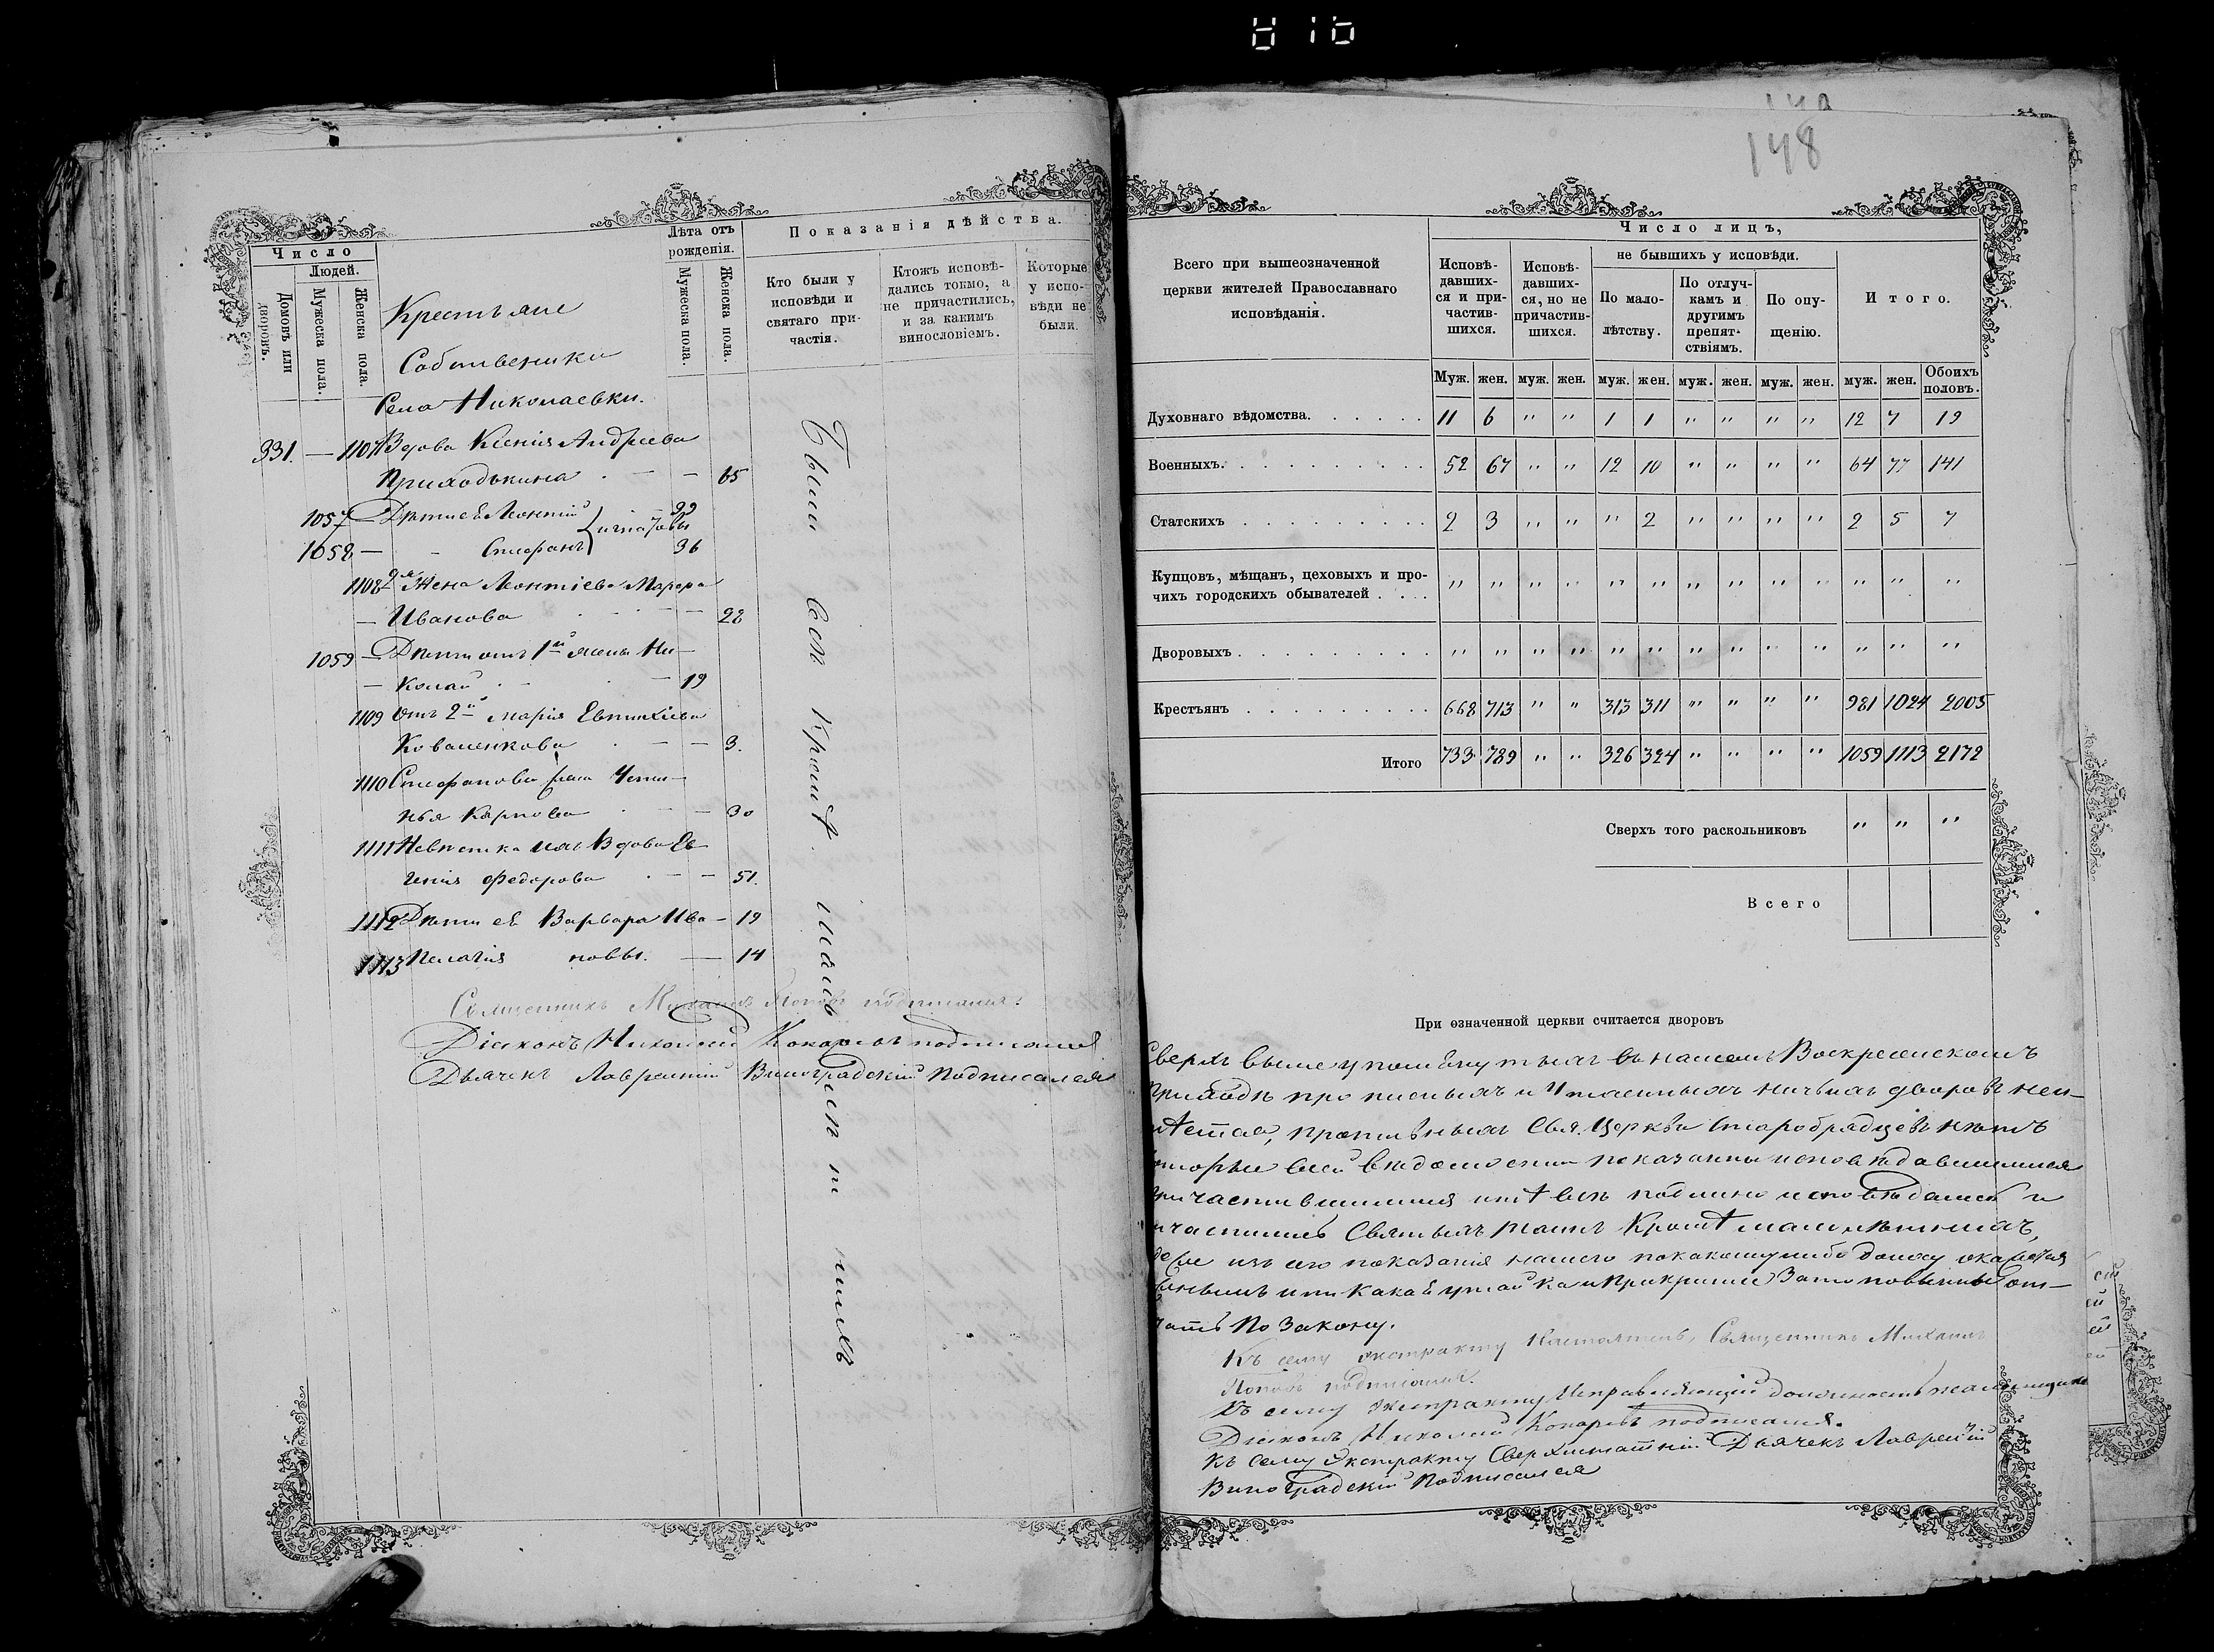 148
Число
Людей.
Домовъ или дворовъ.
Мужеска пола.
Женска пола.
Лѣта отъ рожденія.
Мужеска пола.
Женска пола.
Показанія дѣйства.
Кто были у исповѣди и святаго при-
частія.
Ктожъ исповѣ-
дались токмо, а
не причастились,
и за какимъ
винословіемъ.
Которые
у испо-
вѣди не
были.
Крестьяне
Собственики
Села Николаевки.
331. — 1107 Вдова Ксенія Андреева
Приходькина — — 65
1057 — Дѣти ея Леонтій 39
1058 — — Стефанъ 36
1108 2я Жена Леонтіева Марфа
— Иванова — 28
1059 — Дѣти отъ 1й жены Ни-
— колай — 19
1109 Отъ 2й Марія Евтихіева
Коваленкова — — 3.
1110 Стефанова жена Усти-
нья Карпова — — 30
1111 Невѣстка ихъ Вдова Ев-
генія Федорова — — 51.
1112 Дѣти ея Варвара Ива- 19
1113 Пелагія новы. — 14
Были всѣ кромѣ малолѣтнихъ
Священникъ Михаилъ Поповъ подписался.
Діаконъ Николай Кокоревъ подписался
Дьячекъ Лаврентій Виноградскій Подписался
Всего при вышеозначенной
церкви жителей Православнаго
исповѣданія.
Число лицъ,
Исповѣ-
давших-
ся и при-
частив-
шихся.
Исповѣ-
давших-
ся, но не
причастив-
шихся.
не бывшихъ у исповѣди.
По мало-
лѣтству.
По отлуч-
камъ и
другимъ
препят-
ствіямъ.
По опу-
щенію.
Итого.
Муж. жен. муж. жен. муж. жен. муж. жен. муж. жен. муж. жен. Обоихъ половъ.
Духовнаго вѣдомства. 11 6 " " 1 1 " " " " 12 7 19
Военныхъ. 52 67 " " 12 10 " " " " 64 77 141
Статскихъ 2 3 " " " 2 " " " " 2 5 7
Купцовъ, мѣщанъ, цеховыхъ и про-
чихъ городскихъ обывателей " " " " " " " " " " " " "
Дворовыхъ " " " " " " " " " " " " "
Крестьянъ 668 713 " " 313 311 " " " " 981 1024 2005
Итого 733 789 " " 326 324 " " " " 1059 1113 2172
Сверхъ того раскольниковъ " " "
Всего
При означенной церкви считается дворовъ
Сверхъ вышеупомянутыхъ въ нашемъ Воскресенскомъ
приходѣ прописныхъ и утаенныхъ ничьихъ дворовъ неи-
мѣется, противныхъ Свя. Церкви Старобрядцевъ нѣтъ
которые въ сей вѣдомости показаны исповѣдавшимися
причастившимися тѣ всѣ подлино исповѣдались и
Святыхъ Таинъ Кромѣ малолѣтнихъ,
изъ его показанія нашего покакому либо доносу окажется
или какая утайка и прикрытіе Зато повинны от-
по Закону.
Къ сему экстракту Настоятель, Священникъ Михаилъ
Поповъ подписался.
Къ сему экстракту Исправляющій должность псаломщика
Діаконъ Николай Кокоревъ подписался.
Къ сему Экстракту Сверхштатній Дьячекъ Лаврентій
Виноградскій Подписался